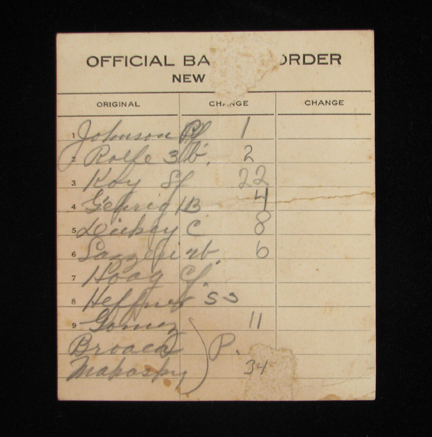 OFFICIAL BA ORDER
NEW
ORIGINAL CHANGE CHANGE
1 Johnson Rf 1
2 Rolfe 3b. 2
3 Koy Lf 22
4 Gehrig 1B 4
5 Dickey C 8
6 Lazzeri 2b. 6
7 Hoag Cf.
8 Heffner SS
9 Gomez 11
Broaca P.
Malosky 34